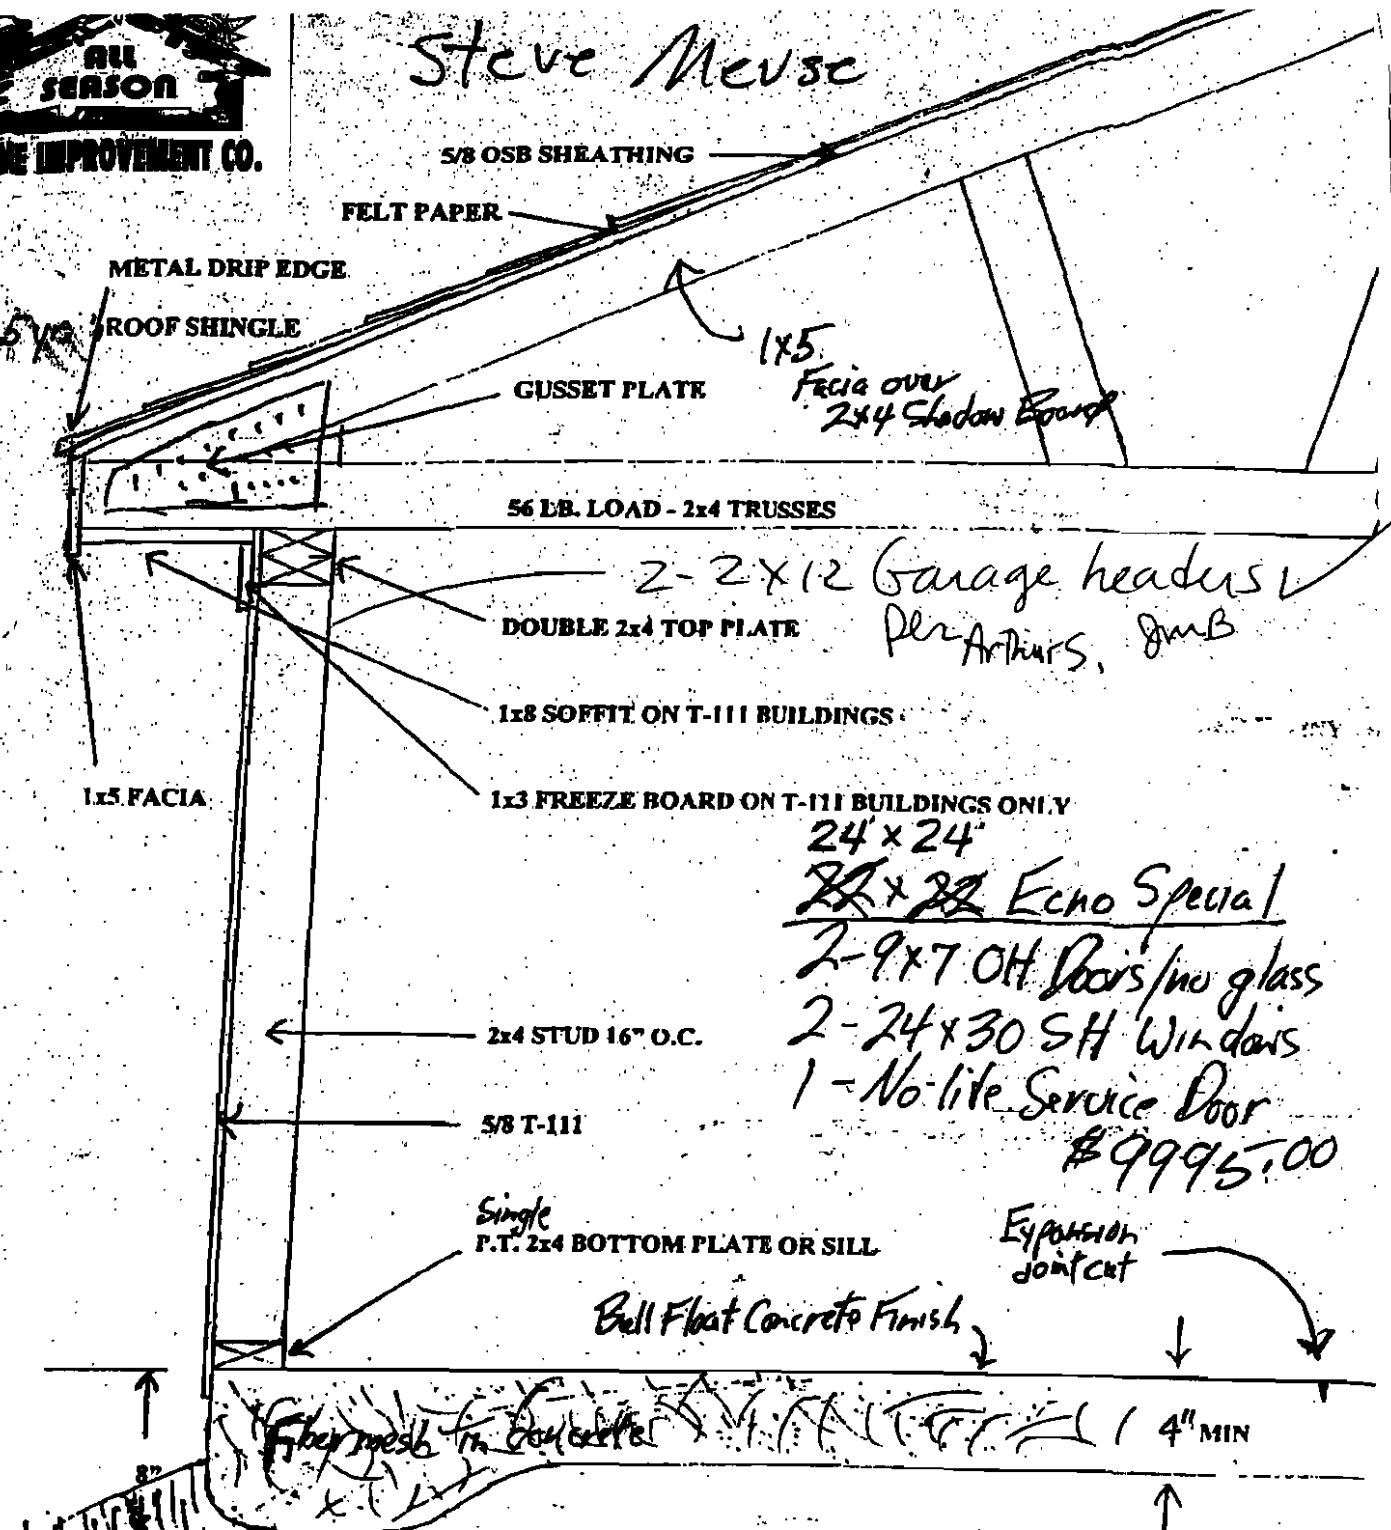 ALL
SEASON
IMPROVEMENT CO.
Steve Meuse
5/8 OSB SHEATHING
FELT PAPER
METAL DRIP EDGE
ROOF SHINGLE
1x5
Facia over
2x4 Shadow Board
GUSSET PLATE
56 LB. LOAD - 2x4 TRUSSES
2-2x12 Garage headers
Per Arthur S. JmB
DOUBLE 2x4 TOP PLATE
1x8 SOFFIT ON T-111 BUILDINGS
1x5 FACIA
1x3 FREEZE BOARD ON T-111 BUILDINGS ONLY
24' x 24'
22 x 22 Ecno Special
2-9x7 OH Doors/no glass
2-24x30 SH Windows
1-No-lite Service Door
$9995.00
2x4 STUD 16" O.C.
5/8 T-111
Single
P.T. 2x4 BOTTOM PLATE OR SILL
Expansion
Joint cut
Bull Float Concrete Finish
Fibermesh in concrete
4" MIN
8"